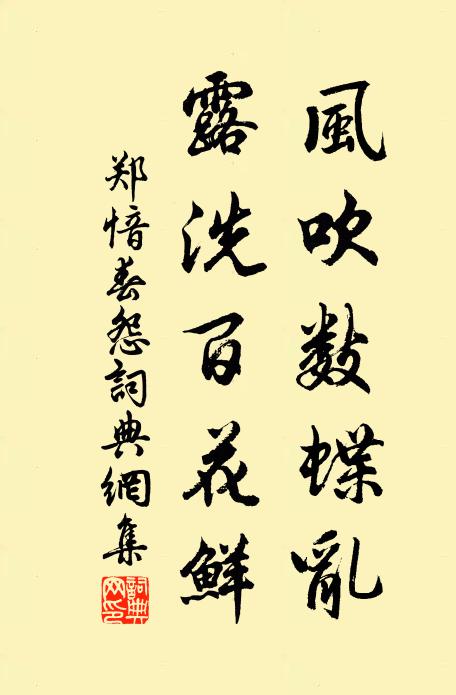 風吹数蝶亂
露洗百花鮮
郑愔春怨詞典網集
詞典網印